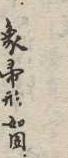 象帚形如圖